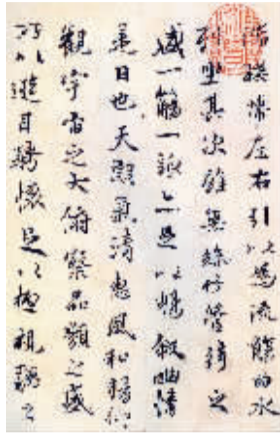 湍暎帶左右引以為流觴曲水
列坐其次雖無絲竹管絃之
盛一觴一詠亦足以暢叙幽情
是日也天朗氣清惠風和暢仰
觀宇宙之大俯察品類之盛
所以遊目騁懷足以極視聽之